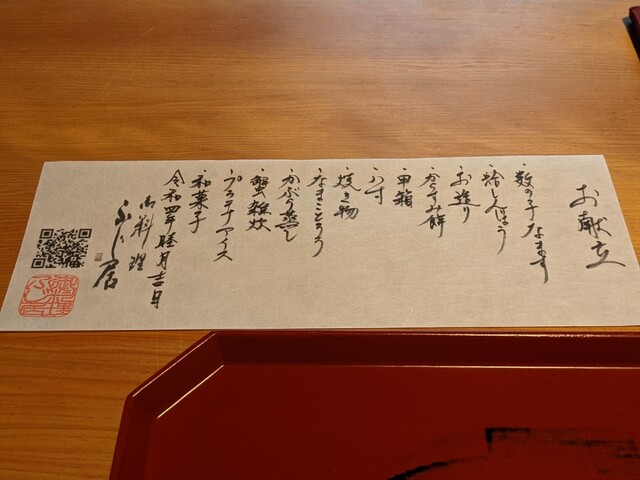 お献立
・数の子なます
・蛤しんじょう
・お造り
・からすみ餅
・甲箱
・八寸
・焼き物
・なまことろろ
・かぶら蒸し
・蟹雑炊
・プラチナアイス
・和菓子
令和四年睦月吉日
御料理
ふじ居